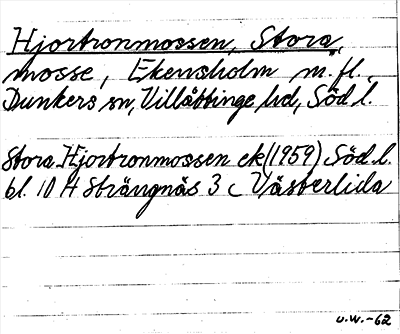 Hjortronmossen, Stora,
mosse, Ekensholm m.fl.,
Dunkers sn, Villåttinge hd, Söd.l.
Stora Hjortronmossen ek(1959) Söd.l.
bl. 10 H Strängnäs 3 c Västerlida
U.W.-62